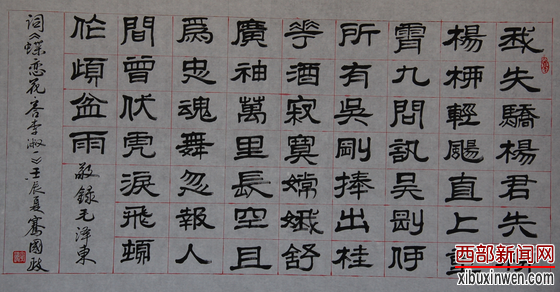 我失驕楊君失柳
楊柳輕颺直上重
霄九問訊吳剛何
所有吳剛捧出桂
華酒寂寞嫦娥舒
廣袖萬里長空且
爲忠魂舞忽報人
間曾伏虎淚飛頓
作傾盆雨 敬錄毛澤東
词《蝶恋花·答李淑一》壬辰夏騫國政
西部新闻网
xibuxinwen.com